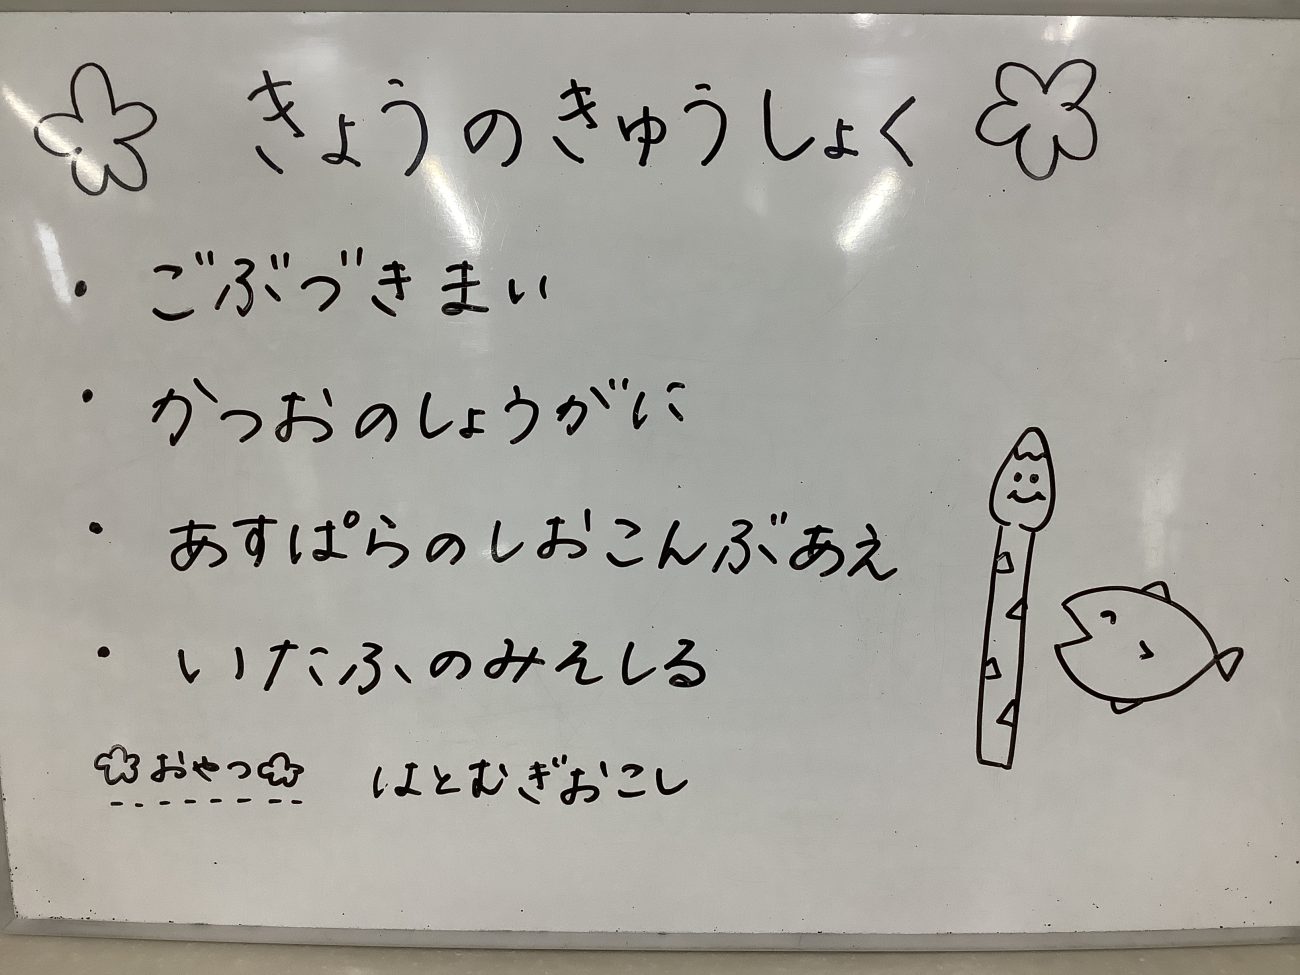 きょうのきゅうしょく
・ごぶづきまい
・かつおのしょうがに
・あすぱらのしおこんぶあえ
・いたふのみそしる
おやつ はとむぎおこし